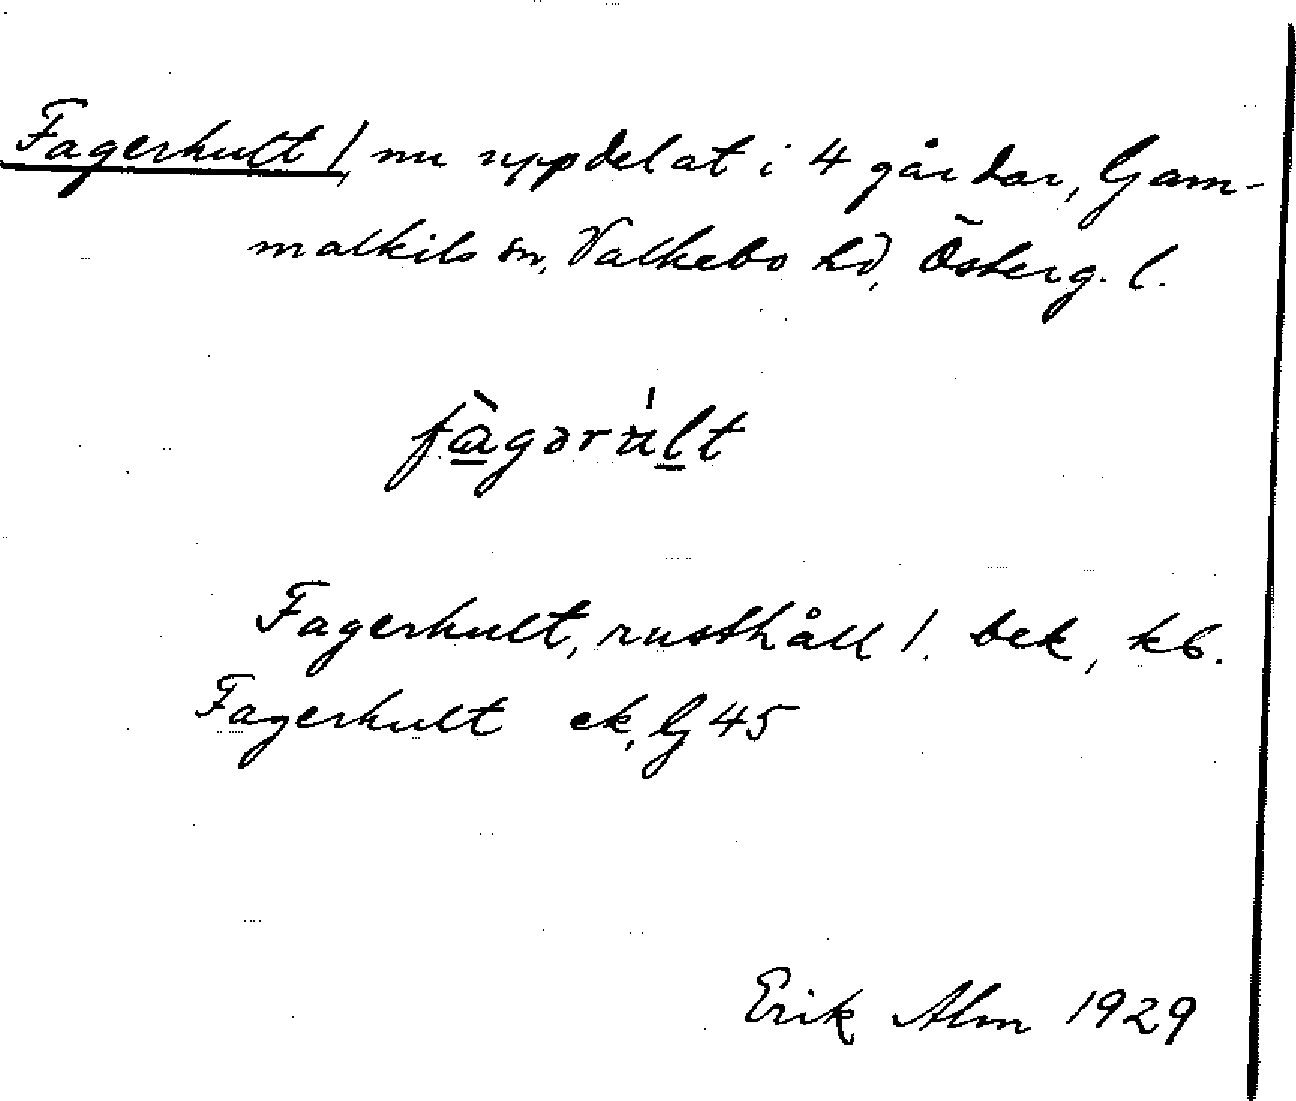 Fagerhult 1, nu uppdelat i 4 gårdar, Gam-
malkils sn, Valkebo hd, Österg. l.
fàgərúlt
Fagerhult, rusthåll 1. bek, kb.
Fagerhult ek, G 45
Erik Alm 1929